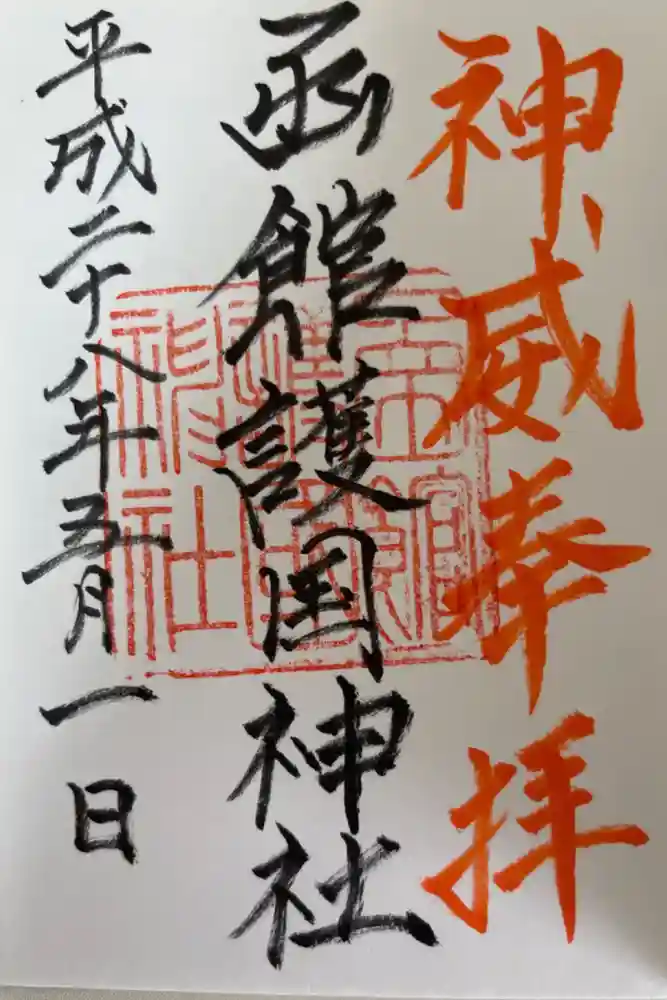 神威奉拝
函館護国神社
平成二十八年五月一日
函館護國神社